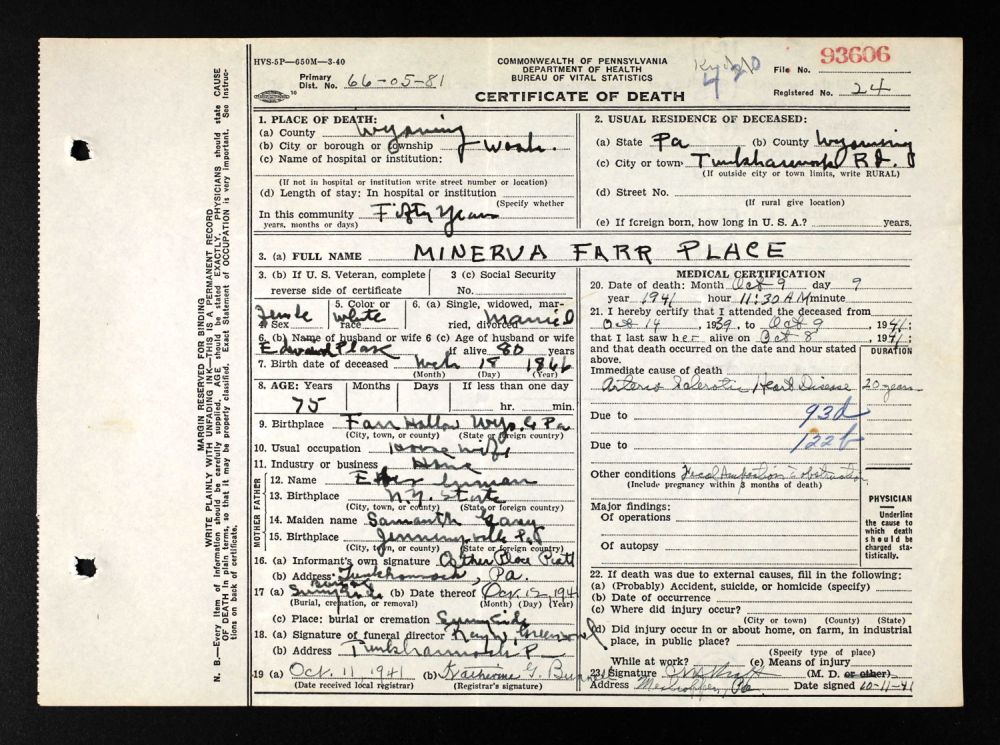 HVS-5P—650M—3-40
COMMONWEALTH OF PENNSYLVANIA
DEPARTMENT OF HEALTH
BUREAU OF VITAL STATISTICS
CERTIFICATE OF DEATH
Primary Dist. No. 66-05-81
420
File No. 93606
Registered No. 24
MARGIN RESERVED FOR BINDING
WRITE PLAINLY WITH UNFADING INK—THIS IS A PERMANENT RECORD
N. B.—Every item of information should be carefully supplied. AGE should be stated EXACTLY. PHYSICIANS should state CAUSE
OF DEATH in plain terms, so that it may be properly classified. Exact Statement of OCCUPATION is very important. See instruc-
tions on back of certificate.
1. PLACE OF DEATH:
(a) County Wyoming
(b) City or borough or township
(c) Name of hospital or institution:
(If not in hospital or institution write street number or location)
(d) Length of stay: In hospital or institution
(Specify whether
In this community Fifty Years
years, months or days)
2. USUAL RESIDENCE OF DECEASED:
(a) State Pa (b) County Wyoming
(c) City or town Tunkhannock Rd.
(If outside city or town limits, write RURAL)
(d) Street No.
(If rural give location)
(e) If foreign born, how long in U. S. A.? years.
3. (a) FULL NAME MINERVA FARR PLACE
3. (b) If U. S. Veteran, complete
reverse side of certificate
3 (c) Social Security
No.
4 Sex Female
5. Color or race White
6. (a) Single, widowed, mar-
ried, divorced Married
6. (b) Name of husband or wife Edward Place
6 (c) Age of husband or wife
if alive 80 years
7. Birth date of deceased 18 1866
(Month) (Day) (Year)
8. AGE: Years Months Days If less than one day
75 hr. min.
9. Birthplace Farr Hollow Wyo. Co Pa
(City, town, or county) (State or foreign country)
10. Usual occupation House wife
11. Industry or business Home
FATHER
12. Name
13. Birthplace N.Y. State
(City, town, or county) (State or foreign country)
MOTHER
14. Maiden name Samantha
15. Birthplace Jenningsville Pa
(City, town, or county) (State or foreign country)
16. (a) Informant's own signature Place Piatt
(b) Address Tunkhannock, Pa.
17 (a) Burial Sunnyside (b) Date thereof Oct. 12, 1941
(Burial, cremation, or removal) (Month) (Day) (Year)
(c) Place: burial or cremation Sunnyside
18. (a) Signature of funeral director Ray W. Greenwood
(b) Address Tunkhannock P
19 (a) Oct. 11, 1941 (b) Katherine G.
(Date received local registrar) (Registrar's signature)
MEDICAL CERTIFICATION
20. Date of death: Month Oct 9 day 9
year 1941 hour 11:30 AM minute
21. I hereby certify that I attended the deceased from
Oct 14, 1939, to Oct 9, 1941;
that I last saw her alive on Oct 8, 1941;
and that death occurred on the date and hour stated
above.
DURATION
Immediate cause of death
Arterio Sclerotic Heart Disease 20 years
Due to 93d
Due to 122b
Other conditions Fecal Impaction c obstruction
(Include pregnancy within 3 months of death)
Major findings:
Of operations
Of autopsy
PHYSICIAN
Underline
the cause to
which death
should be
charged sta-
tistically.
22. If death was due to external causes, fill in the following:
(a) (Probably) Accident, suicide, or homicide (specify)
(b) Date of occurrence
(c) Where did injury occur?
(City or town) (County) (State)
(d) Did injury occur in or about home, on farm, in industrial
place, in public place?
(Specify type of place)
While at work? (e) Means of injury
23. Signature (M. D. or other)
Address Meshoppen, Pa. Date signed 10-11-41